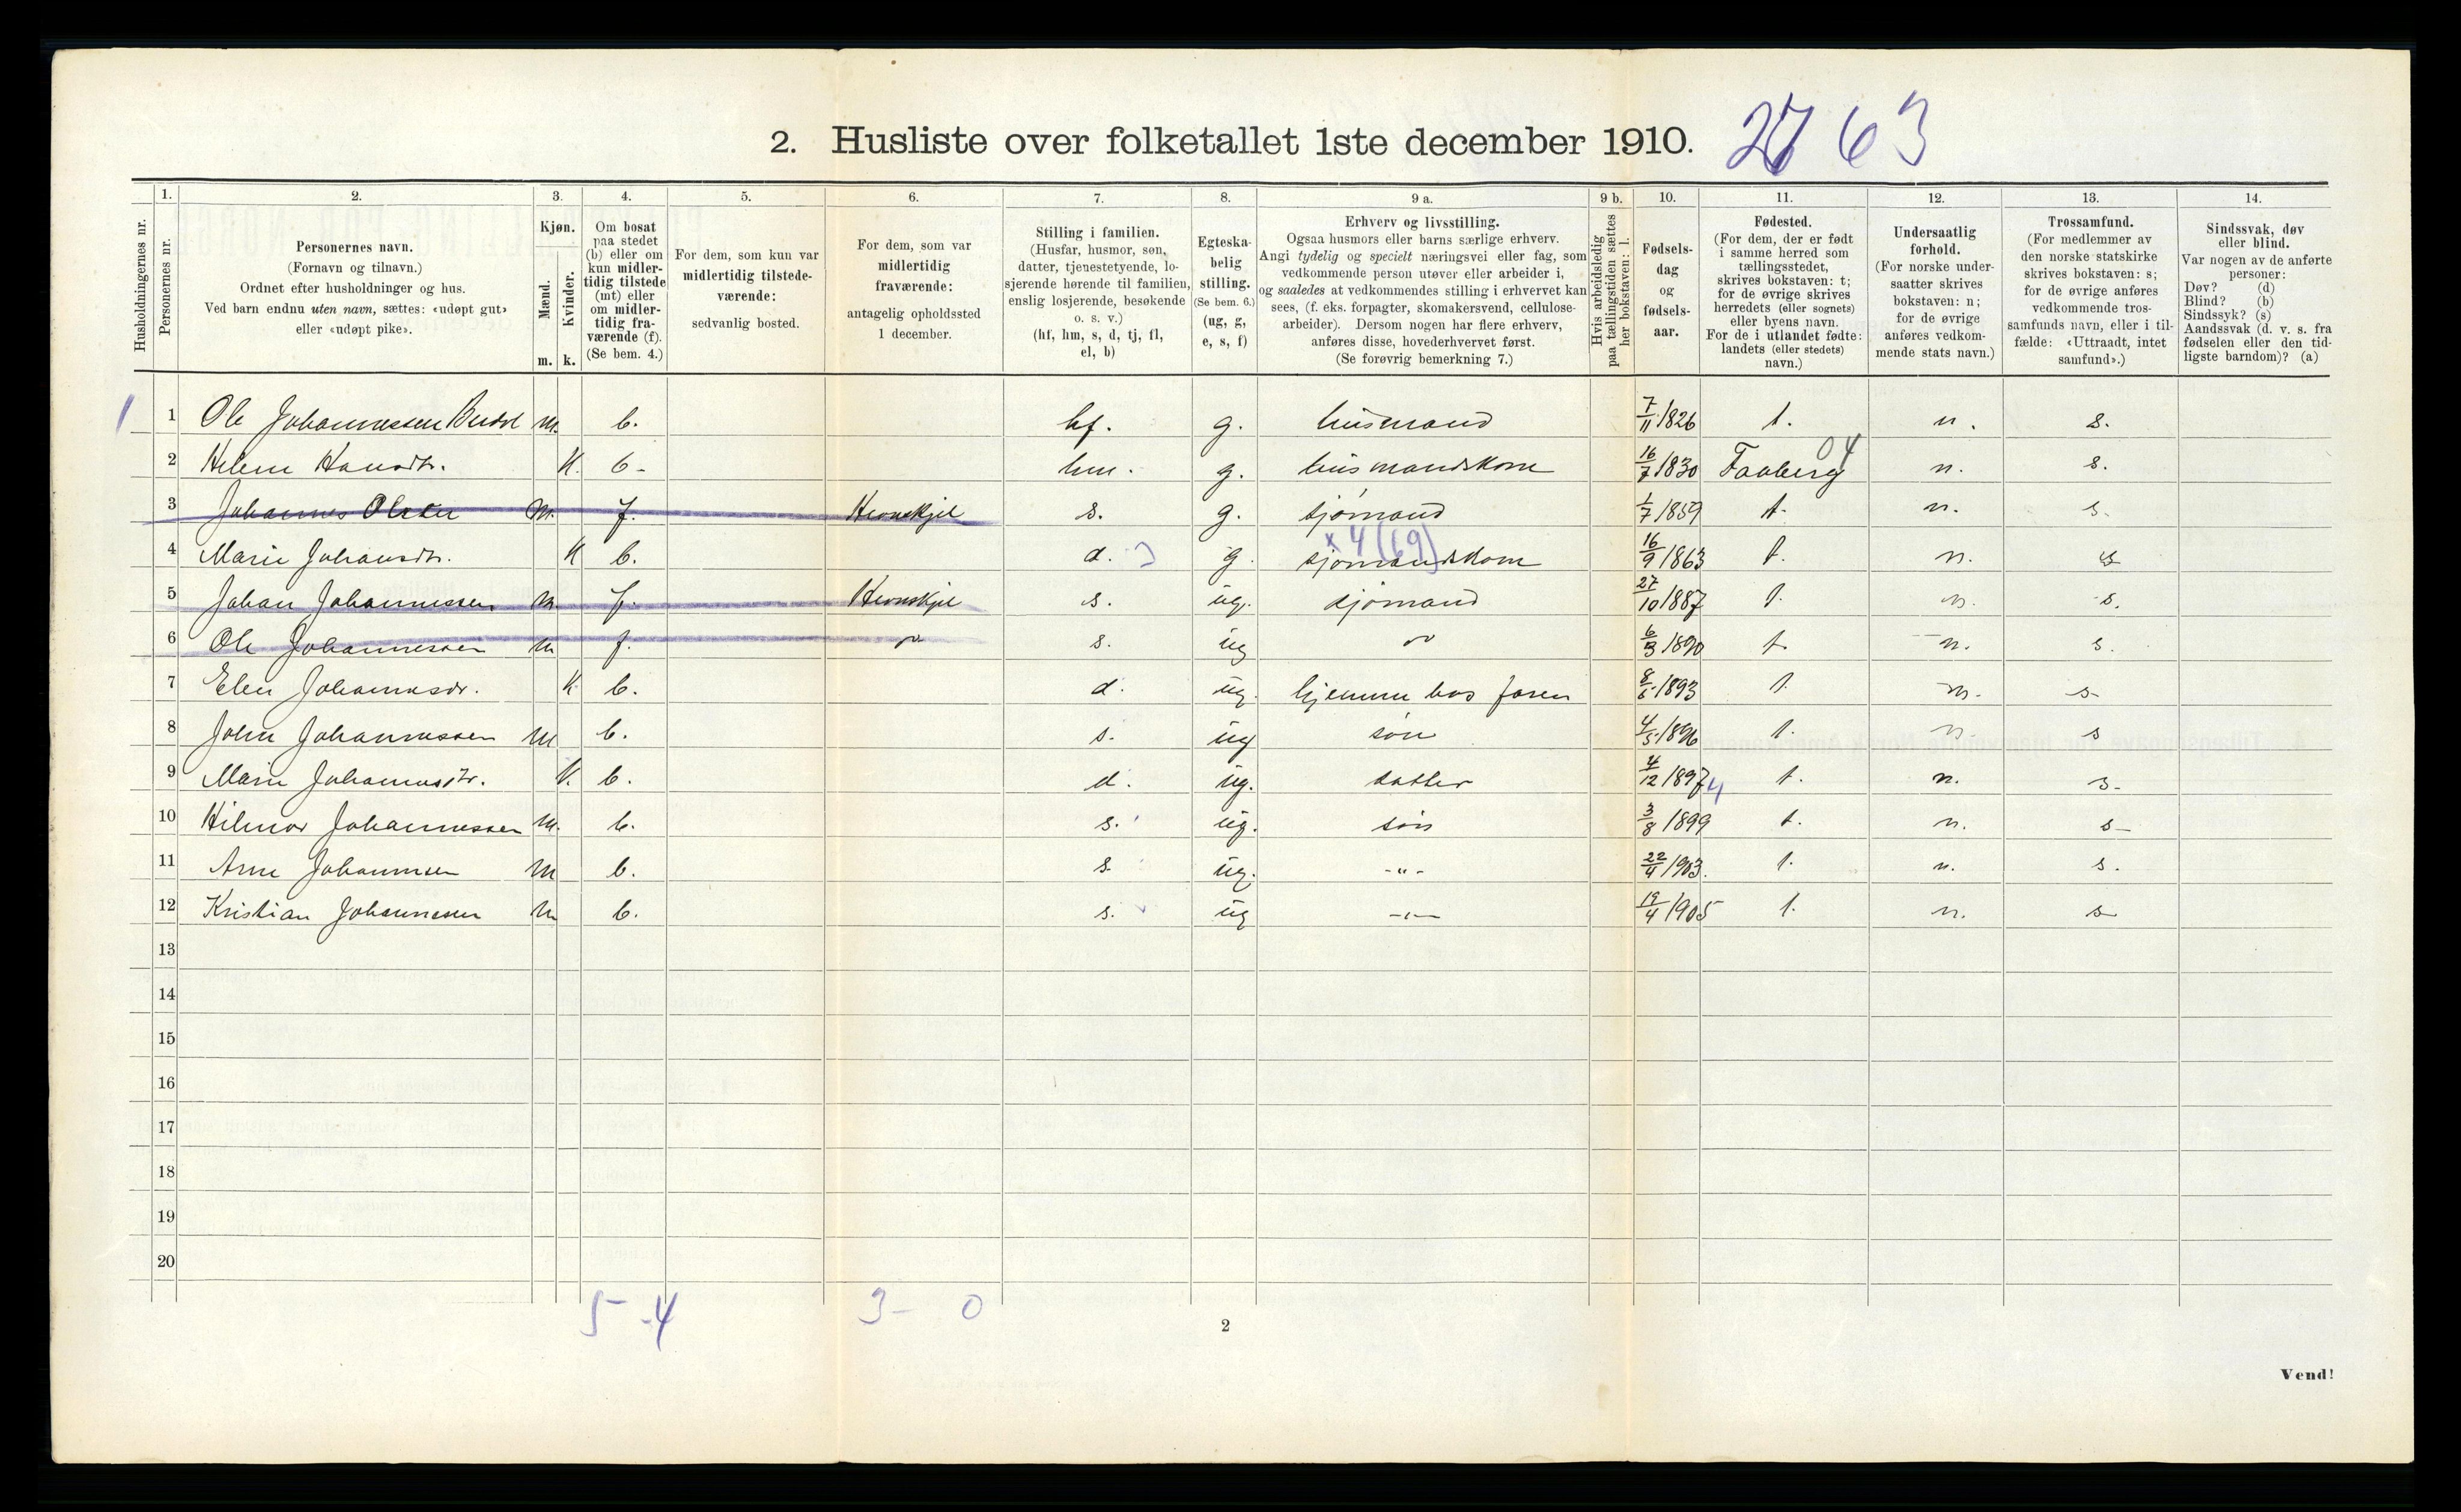 2. Husliste over folketallet 1ste december 1910. 2763
Husholdningernes nr.
1. Personernes nr.
2. Personernes navn. (Fornavn og tilnavn.) Ordnet efter husholdninger og hus. Ved barn endnu uten navn, sættes: «udøpt gut» eller «udøpt pike».
3. Kjøn. Mænd. m. Kvinder. k.
4. Om bosat paa stedet (b) eller om kun midlertidig tilstede (mt) eller om midlertidig fraværende (f). (Se bem. 4.)
5. For dem, som kun var midlertidig tilstedeværende: sedvanlig bosted.
6. For dem, som var midlertidig fraværende: antagelig opholdssted 1 december.
7. Stilling i familien. (Husfar, husmor, søn, datter, tjenestetyende, losjerende hørende til familien, enslig losjerende, besøkende o. s. v.) (hf, hm, s, d, tj, fl, el, b)
8. Egteskabelig stilling. (Se bem. 6.) (ug, g, e, s, f)
9 a. Erhverv og livsstilling. Ogsaa husmors eller barns særlige erhverv. Angi tydelig og specielt næringsvei eller fag, som vedkommende person utøver eller arbeider i, og saaledes at vedkommendes stilling i erhvervet kan sees, (f. eks. forpagter, skomakersvend, cellulosearbeider). Dersom nogen har flere erhverv, anføres disse, hovederhvervet først. (Se forøvrig bemerkning 7.)
9 b. Hvis arbeidsledig paa tællingstiden sættes her bokstaven: l.
10. Fødselsdag og fødselsaar.
11. Fødested. (For dem, der er født i samme herred som tællingsstedet, skrives bokstaven: t; for de øvrige skrives herredets (eller sognets) eller byens navn. For de i utlandet fødte: landets (eller stedets) navn.)
12. Undersaatlig forhold. (For norske undersaatter skrives bokstaven: n; for de øvrige anføres vedkommende stats navn.)
13. Trossamfund. (For medlemmer av den norske statskirke skrives bokstaven: s; for de øvrige anføres vedkommende trossamfunds navn, eller i tilfælde: «Uttraadt, intet samfund».)
14. Sindssvak, døv eller blind. Var nogen av de anførte personer: Døv? (d) Blind? (b) Sindssyk? (s) Aandssvak (d. v. s. fra fødselen eller den tidligste barndom)? (a)
1 1 Ole Johannessen m. b. hf. g. husmand 7/11 1826 t. n. s.
2 Helene Hansdtr. K. b- hm. g. husmandskone 16/7 1830 Faaberg 04 n. s.
3 Johannes Olsen M. f. s. g. sjømand 1/7 1859 t. n. s.
4 Marie Johansdtr. K b. d. g. sjømandskone x 4 (69) 16/9 1863 t. n. s
5 Johan Johannessen M. f. s. ug. sjømand 27/10 1887 t. n. s.
6 Ole Johannessen m f. s. ug 6/3 1890 t. n. s.
7 Elen Johannesdr. K b. d. ug. hjemme hos faren 8/6 1893 t. n. s-
8 John Johannessen M b. s. ug søn 4/5 1896 t. n. s
9 Marie Johannesdtr. K. b. d. ug. datter 4/12 1897 4 t. n. s-
10 Hilmar Johannessen M. b. s. ug. søn 3/8 1899 t. n. s-
11 Arne Johannsen M b. s. ug. -"- 22/4 1903. t. n. s.
12 Kristian Johannesen M b. s. ug -"- 19/4 1905 t. n. s
13
14
15
16
17
18
19
20
5 - 4 3 - 0
2
Vend!